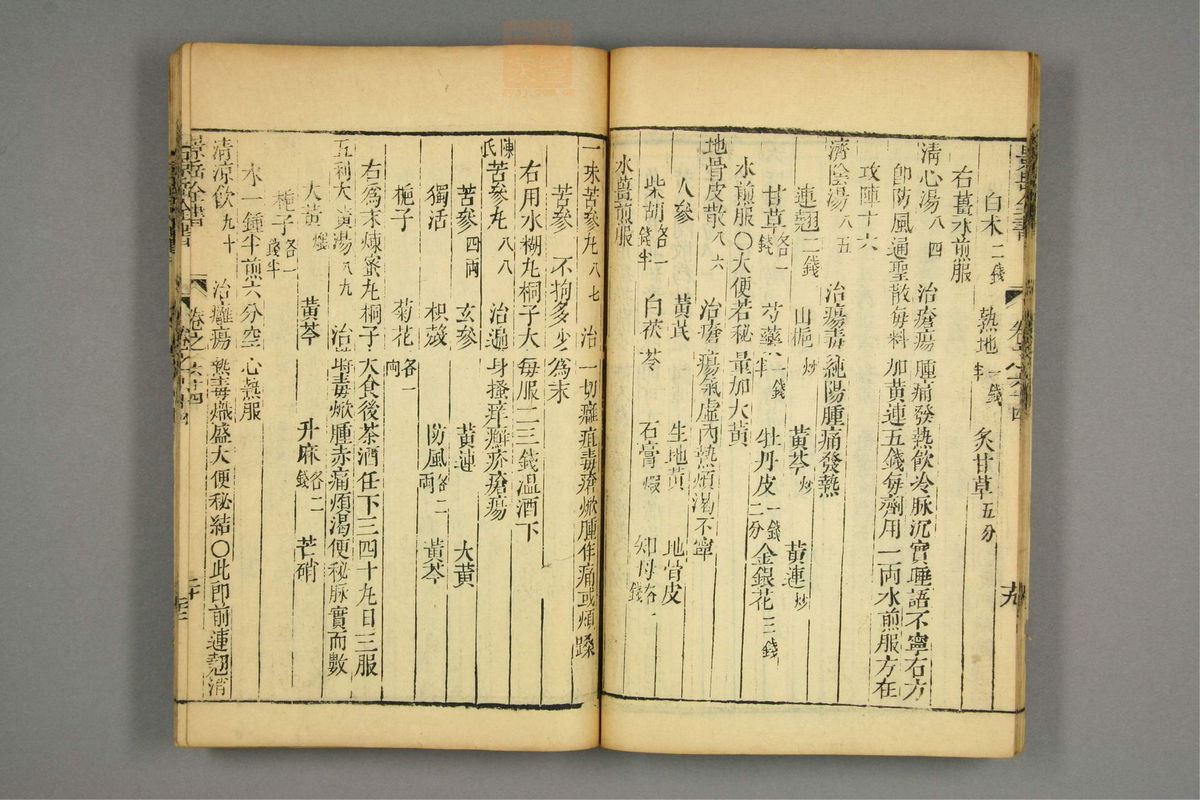 白朮二錢 熟地一錢半 炙甘草五分
右薑水煎服
清心湯八四 治瘡瘍腫痛發熱飲冷脉沉實睡語不寧右方
卽防風通聖散每料加黃連五錢每劑用一両水煎服方在
攻陣十六
濟陰湯八五 治瘍毒純陽腫痛發熱
連翹二錢 山梔炒 黃芩炒 黃連炒
甘草各一錢 芍藥一錢半 牡丹皮一錢二分 金銀花三錢
水煎服〇大便若秘量加大黃
地骨皮散八六 治瘡瘍氣虛內熱煩渴不寧
人參 黃芪 生地黃 地骨皮
柴胡各一錢半 白茯苓 石膏煆 知母各一錢
水薑煎服
一珠苦參丸八七 治一切癰疽毒瘡焮腫作痛或煩躁
苦參不拘多少爲末
右用水糊丸桐子大每服二三錢溫酒下
陳氏苦參丸八八 治遍身搔痒癬疥瘡瘍
苦參四両 玄參 黃連 大黃
獨活 枳殼 防風各二両 黃芩
梔子 菊花各一両
右爲末煉蜜丸桐子大食後茶酒任下三四十丸日三服
五利大黃湯八九 治時毒焮腫赤痛煩渴便秘脉實而數
大黃煨 黃芩 升麻各二錢 芒硝
梔子各一錢半
水一鍾半煎六分空心熱服
清涼飲九十 治癰瘍熱毒熾盛大便秘結〇此卽前連翹消
景岳全書 卷之六十四